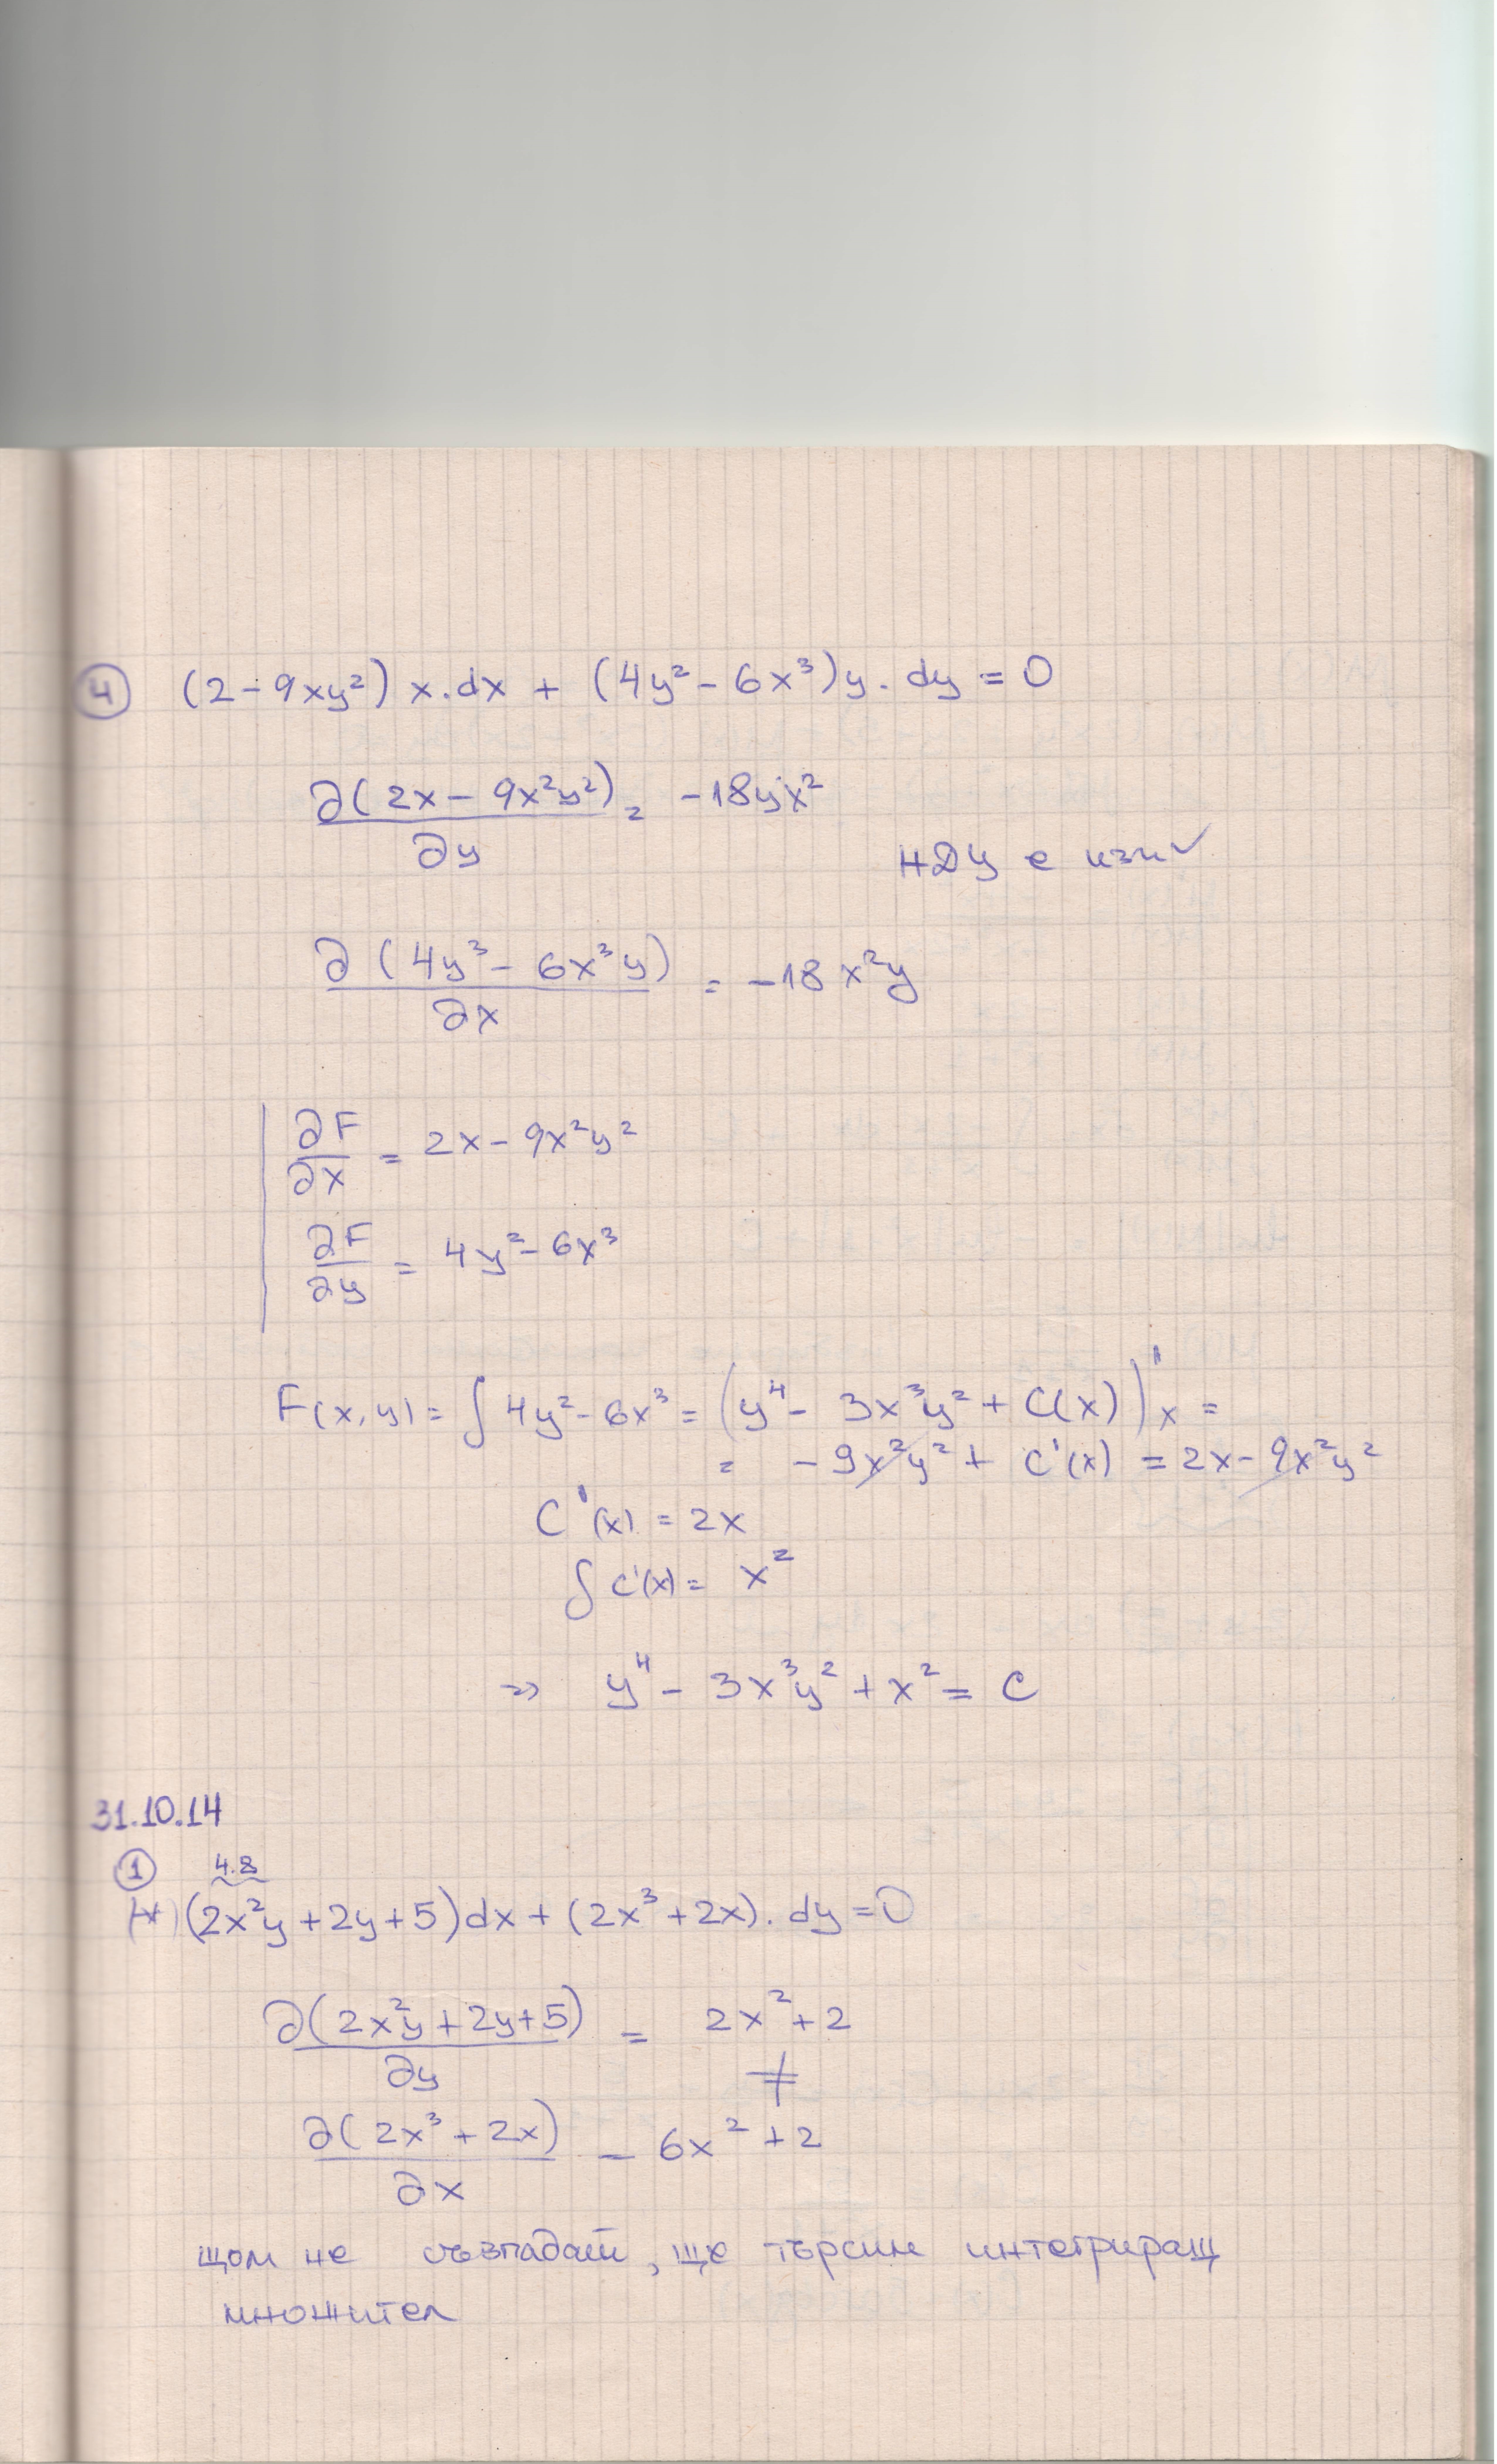 ④ (2 - 9xy²) x.dx + (4y² - 6x³)y. dy = 0
∂(2x - 9x²y²)/∂y = -18yx²
НДУ е изп ✓
∂(4y³ - 6x³y)/∂x = -18x²y
∂F/∂x = 2x - 9x²y²
∂F/∂y = 4y² - 6x³
F(x,y) = ∫ 4y² - 6x³ = (y⁴ - 3x³y² + C(x))'x =
= -9x²y² + C'(x) = 2x - 9x²y²
C'(x) = 2x
∫ C'(x) = x²
=> y⁴ - 3x³y² + x² = C
31.10.14
① 4.8
(*) (2x²y + 2y + 5)dx + (2x³ + 2x). dy = 0
∂(2x²y + 2y + 5)/∂y = 2x² + 2
≠
∂(2x³ + 2x)/∂x = 6x² + 2
щом не съвпадат, ще търсим интегриращ
множител